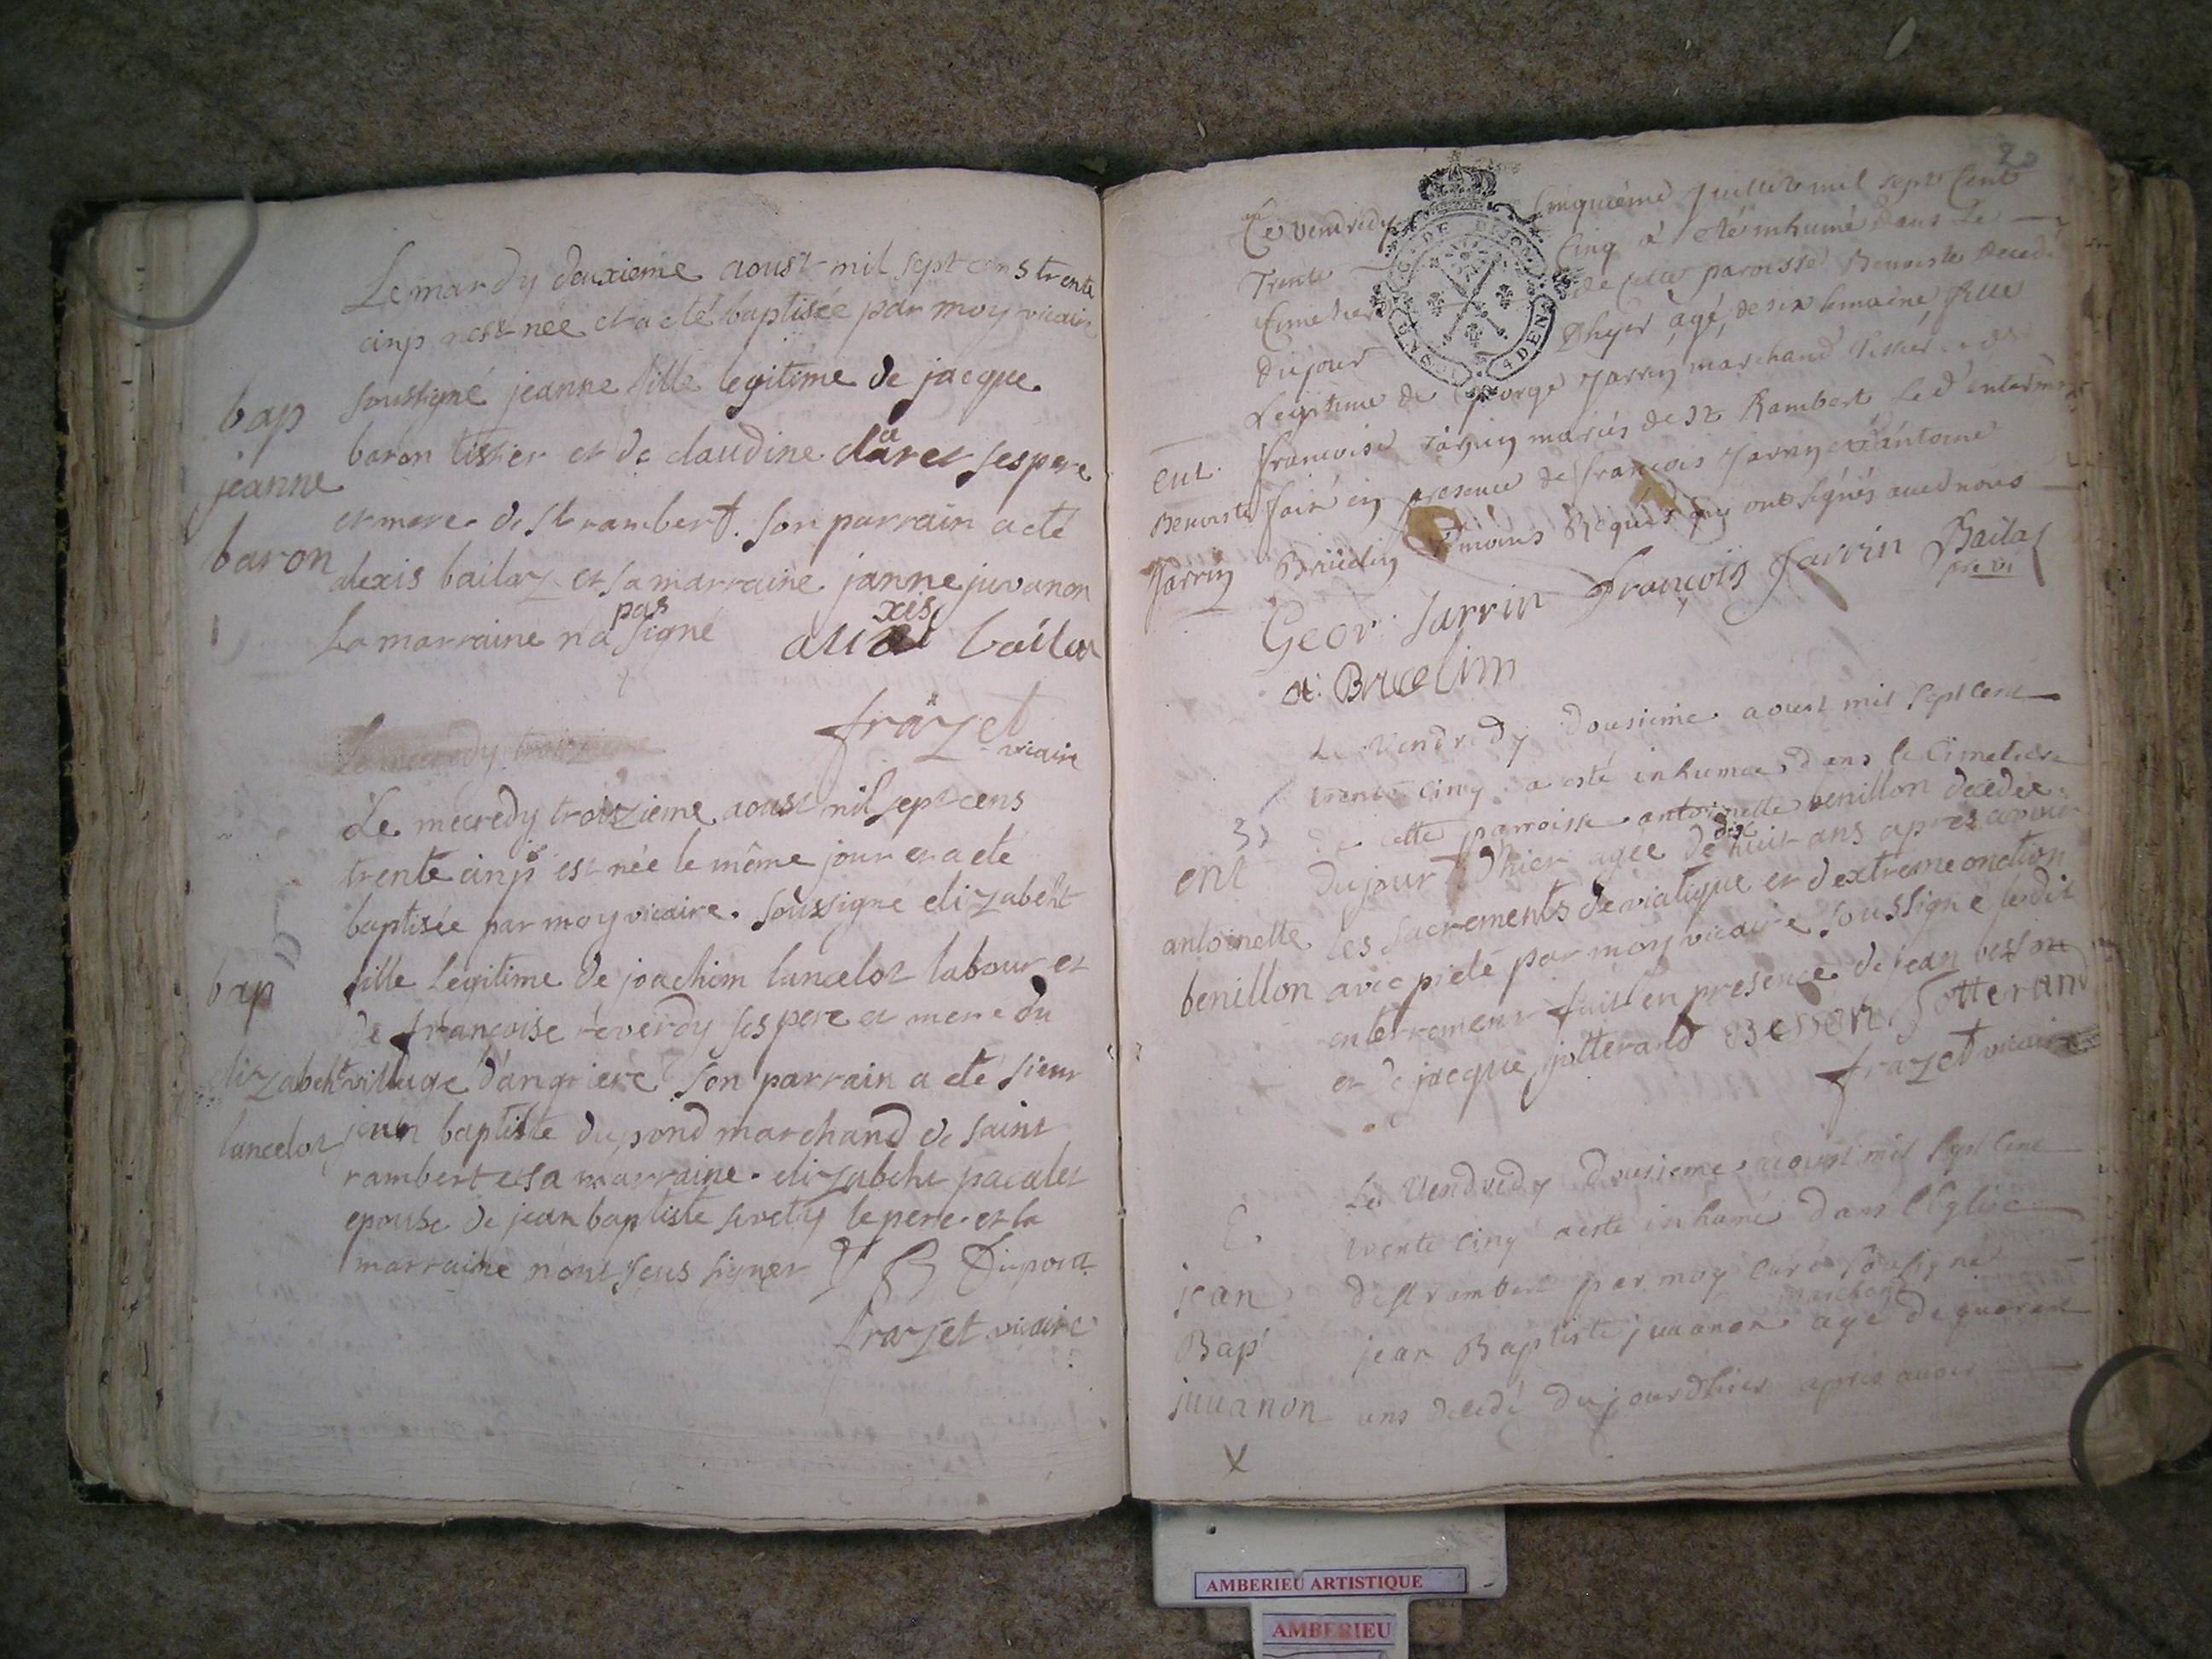 Le mardy deuxieme aoust mil sept cens trente
cinq est née et a eté baptisée par moy vicair
soussigné jeanne fille legitime de jacque
bap
baron tissier et de claudine claret ses pere
jeanne
et mere de St rambert. son parrain a eté
baron
alexis bailaz et sa marraine janne juvanon
La marraine n'a pas signé alexis bailaz
frazet
vicaire
Le mecredy troizieme
Le mecredy troizieme aoust mil sept cens
trente cinq est née le même jour et a eté
baptisée par moy vicaire soussigné elizabeht
fille Legitime de joachim lancelot labour et
bap
de françoise reverdy ses pere et mere du
elizabeht
village d'angriere son parrain a eté sieur
jean baptiste dupond marchand de saint
lancelot
rambert et sa marraine elizabeht pacalet
epouse de jean baptiste le pere et la
marraine n'ont sçus signer J B Dupont
frazet vicaire
Le vendredy cinquiême Juillet mil sept Cent
Trente Cinq a eté inhumé dans Le
Cimetiere de cette paroisse Benoiste decedé
Du jour Dhyer, agé, de six semaine, fille
Legitime de George Jarrin marchand
ent.
francoise mariés de St Rambert Le d' enterment
Benoiste
fait en presence de françois Jarrin et antoine
Jarrin
Bruelin temoins Requis qui ont signés avec nous
Geor: Jarrin François Jarrin Bailaz
pre vi
At: Brucelim
Le Vendredy dousieme aoust mil sept cent
trente cinq a esté inhumée dans le Cimetiere
33
de cette parroisse antoinette benillon decedée
ent
du jour D'hier agée de dix huit ans apres avoir
antoinette
les sacrements de viatique et d'extreme onction
benillon
avec pieté par moy vicaire soussigné ledit
enterrement fait en presence de jean besson
et de jacque jotterand Besson Jotterand
frazet vicaire
Le Vendredy dousieme aoust mil sept cent
E.
trente cinq a esté inhumé dans l'Eglise
jean
de st rambert par moy curé soussigné
marchand
Bap
jean Baptiste juuanon agé de quarant
juuanon
ans decedé du jour d'hier apres auoir
X
AMBERIEU ARTISTIQUE
AMBERIEU